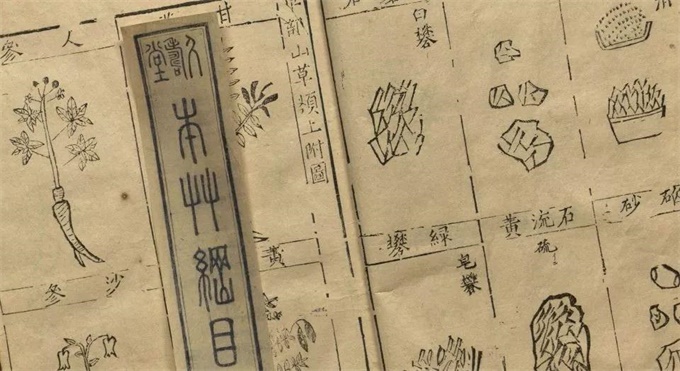 人參
沙參
黃
久壽堂
本艸綱目
部山草類上附圖
白礬
綠礬
皂礬
石流黃
硫
砂